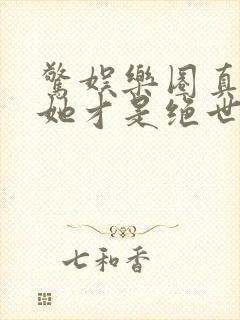 驚娱樂圈真
她才是绝世
七和香